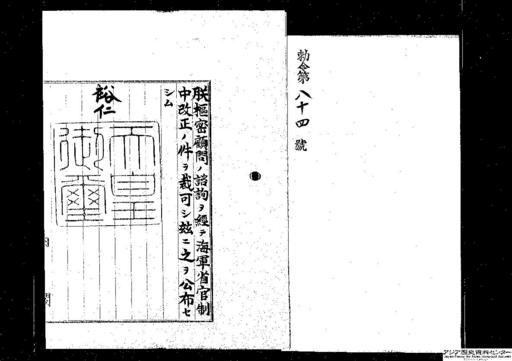 勅令第八十四號
朕樞密顧問ノ諮詢ヲ經テ海軍省官制
中改正ノ件ヲ裁可シ玆ニ之ヲ公布セ
シム
裕仁
天皇
御璽
内閣
アジア歴史資料センター